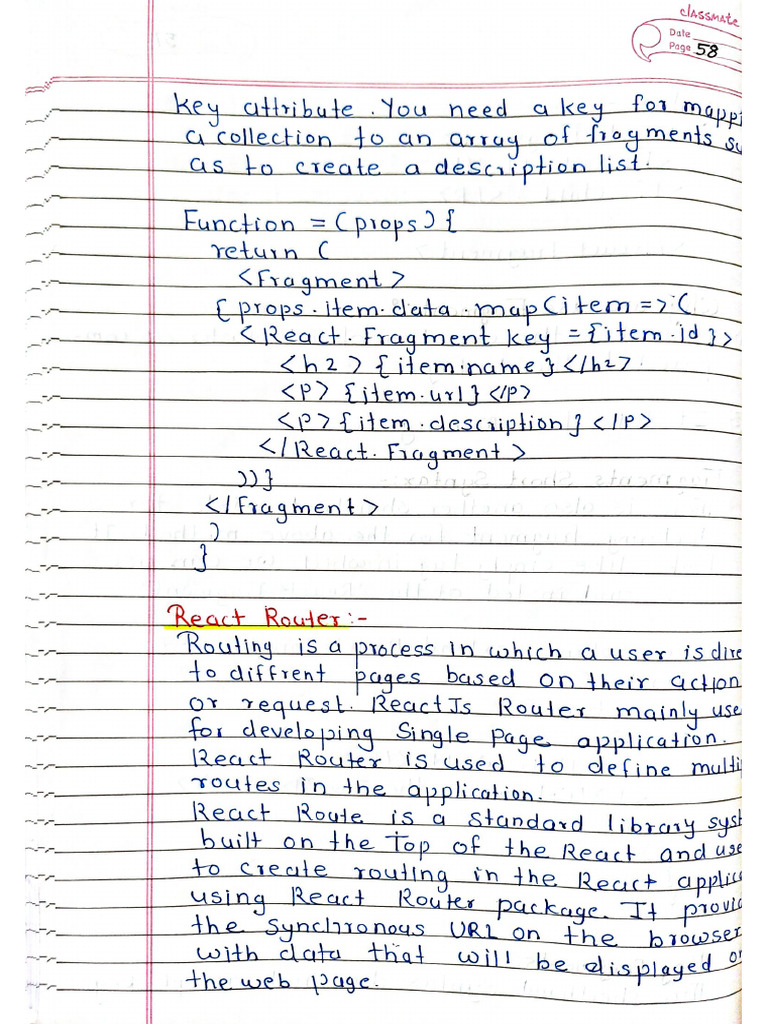 classmate
Date
Page 58
Key attribute. You need a key for mapp
a collection to an array of fragments su
as to create a description list.
Function = (props) {
return (
<Fragment>
{props.item.data.map(item => (
<React.Fragment key = {item.id}>
<h2> {item.name} </h2>
<P> {item.url} </P>
<P> {item.description} </P>
</React.Fragment>
))}
</Fragment>
)
}
React Router:-
Routing is a process in which a user is dire
to diffrent pages based on their action
or request. ReactJs Router mainly use
for developing Single Page application.
React Router is used to define multi
routes in the application.
React Route is a standard library syst
built on the Top of the React and use
to create routing in the React applic
using React Router package. It provid
the synchronous URL on the browser
with data that will be displayed on
the web page.